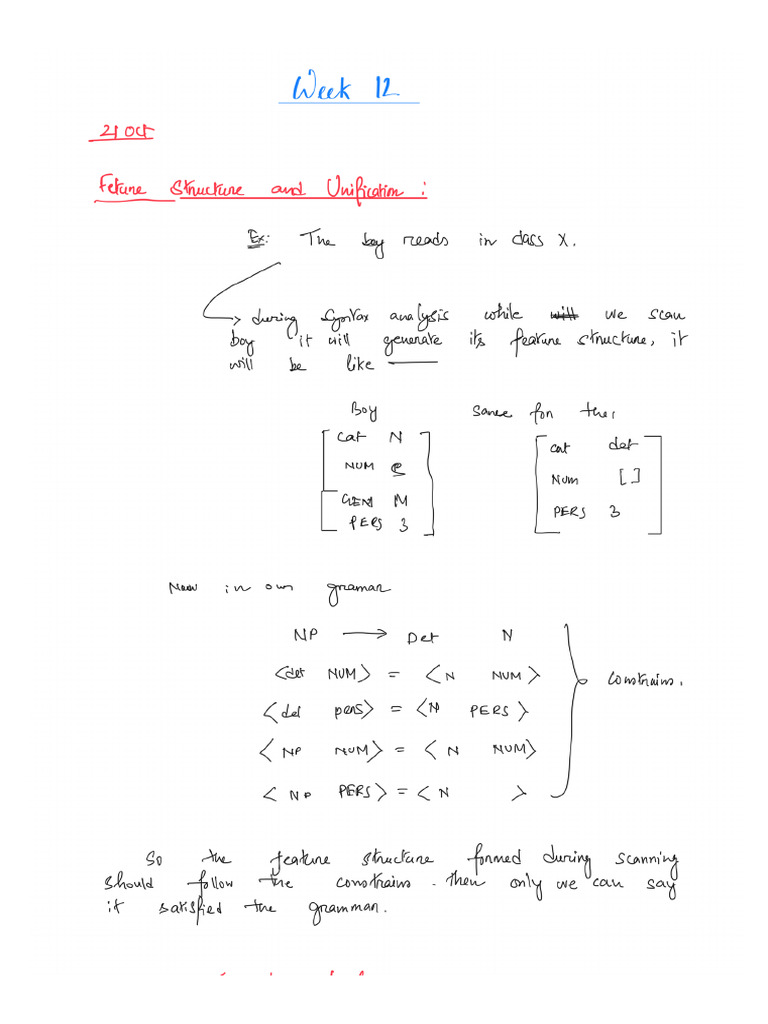 Week 12
21 Oct
Feture Structure and Unification :
Ex: The boy reads in class X.
→ during Syntax analysis while will we scan
boy it will generate its feature structure, it
will be like ——
Boy
cat N
NUM
GEN M
PERS 3
Same for the,
cat det
NUM [ ]
PERS 3
Now in own gramar
NP → Det N
<det NUM> = <N NUM>
<det pers> = <N PERS>
<NP NUM> = <N NUM>
<NP PERS> = <N >
Constrains.
So the feature structure formed during scanning
should follow the constrains. then only we can say
it satisfied the grammar.